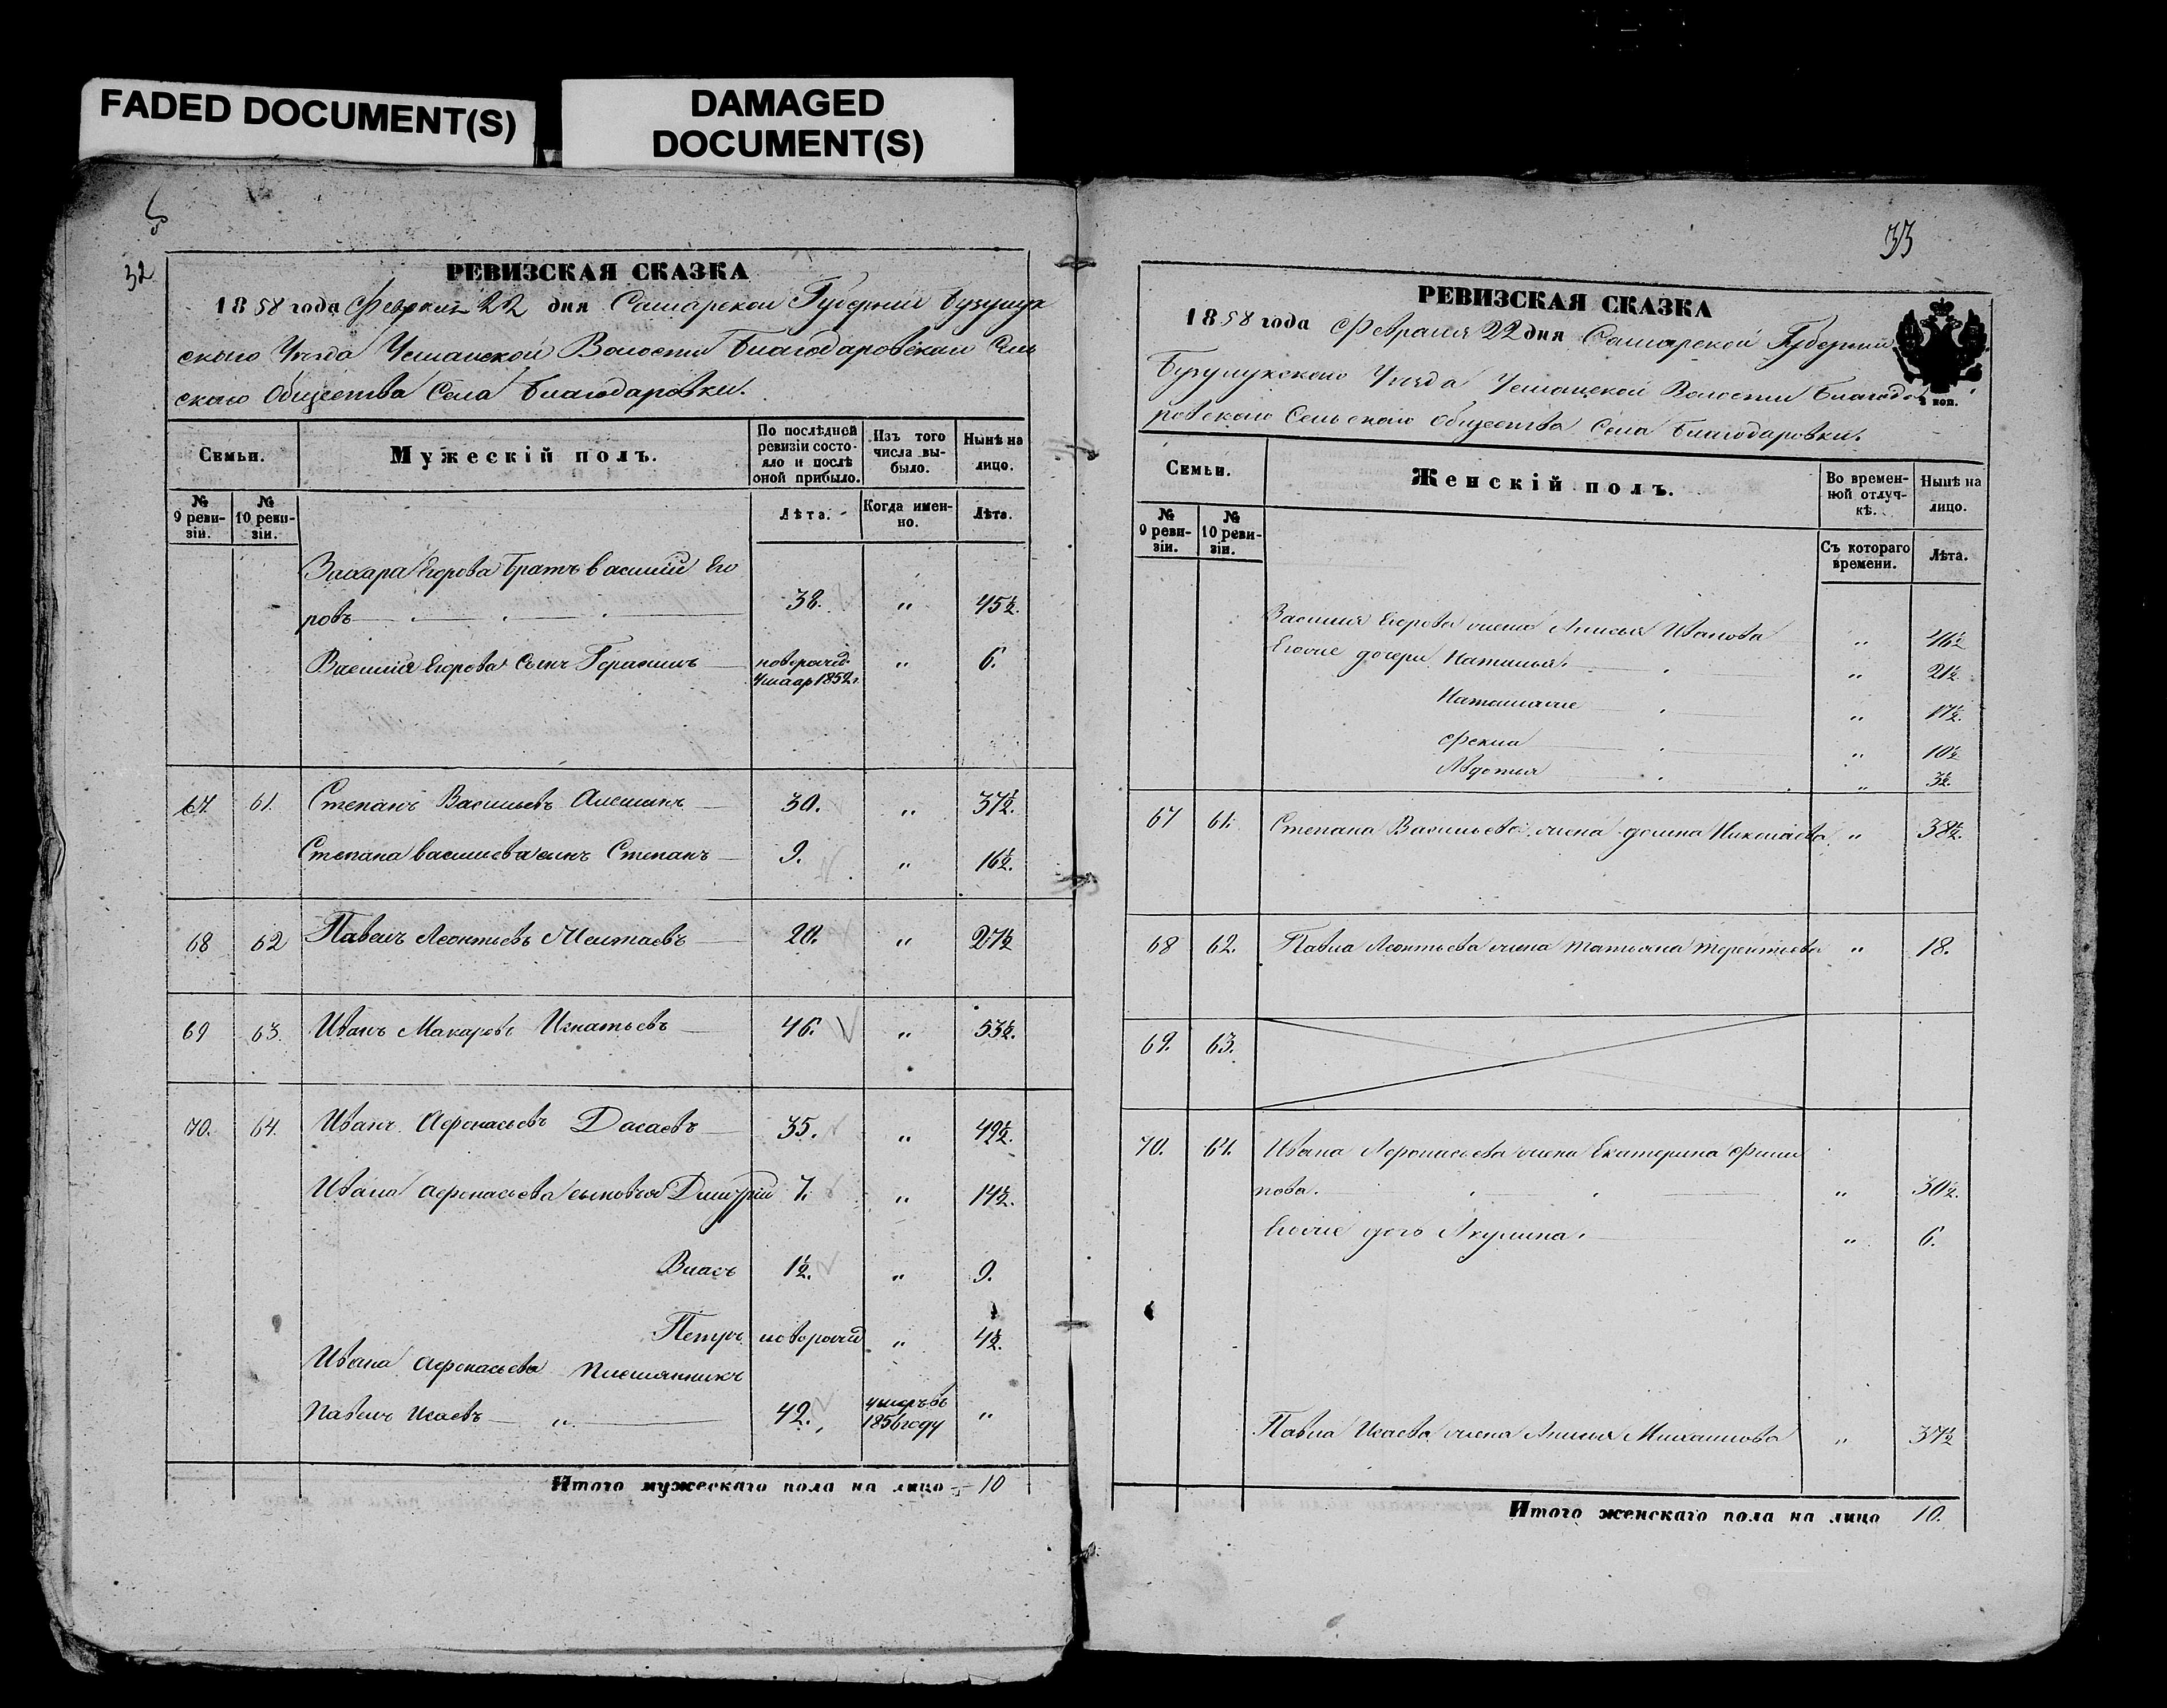 FADED DOCUMENT(S)
DAMAGED
DOCUMENT(S)
32
РЕВИЗСКАЯ СКАЗКА
1858 года Февраля 22 дня Самарской Губернии Бузулук
скаго Уѣзда Волости Благодаровскаго Сель
скаго Общества Села Благодаровки.
Семьи.
Мужескій полъ.
По послѣдней
ревизіи состо-
яло и послѣ
оной прибыло.
Изъ того
числа вы-
было.
Нынѣ на
лицо.
№
9 реви-
зіи.
№
10 реви-
зіи.
Лѣта.
Когда имен-
но.
Лѣта.
Захара Егорова братъ Василий Его
ровъ 38. " 45½.
Василия Егорова сынъ Герасимъ новорожд. " 6.
1852г.
67. 61. Степанъ Васильевъ Алешинъ 30. " 37½.
Степана Васильева сынъ Степанъ 9. " 16½.
68 62 Павелъ Леонтьевъ 20. " 27½
69 63. Иванъ Макаровъ Игнатьевъ 46. " 53½.
70. 64. Иванъ Афонасьевъ Дасаевъ 35. " 49½.
Ивана Афонасьева сыновья Дмитрій 7. " 14½.
Власъ 1½. " 9.
Петръ новорожд " 4½.
Ивана Афонасьева племянникъ
Павелъ Исаевъ " 42. умеръ въ "
1856 году
Итого мужескаго пола на лицо 10
33
РЕВИЗСКАЯ СКАЗКА
1858 года Февраля 22 дня Самарской Губернии
Бузулукскаго Уѣзда Волости Благода
ровскаго Сельскаго Общества Села Благодаровки.
коп.
Семьи.
Женскій полъ.
Во времен-
ной отлуч-
кѣ.
Нынѣ на
лицо.
№
9 реви-
зіи.
№
10 реви-
зіи.
Съ котораго
времени.
Лѣта.
Василия Егорова жена Анисья Иванова " 46½
Егоже дочери " 21½.
Наталия " 17½.
Фекла " 10½
Авдотья " 3½.
67 61. Степана Васильева жена Домна Николаева " 38½.
68 62. Павла Леонтьева жена Татьяна Терентьева " 18.
69. 63.
70. 64. Ивана Афонасьева жена Екатерина Филип
пова. " 30½.
Егоже дочь Акулина. " 6.
Павла Исаева жена Михаилова " 37½
Итого женскаго пола на лицо 10.